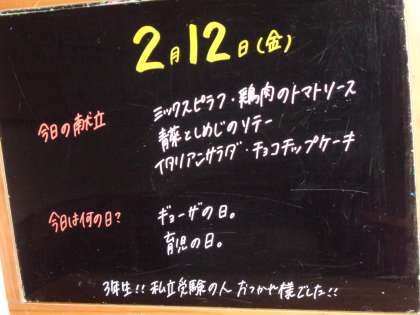 2月12日(金)
今日の献立 ミックスピラフ・鶏肉のトマトソース
青菜としめじのソテー
イタリアンサラダ・チョコチップケーキ
今日は何の日? ギョーザの日。
育児の日。
3年生!! 私立受験の人 おつかれ様でした!!